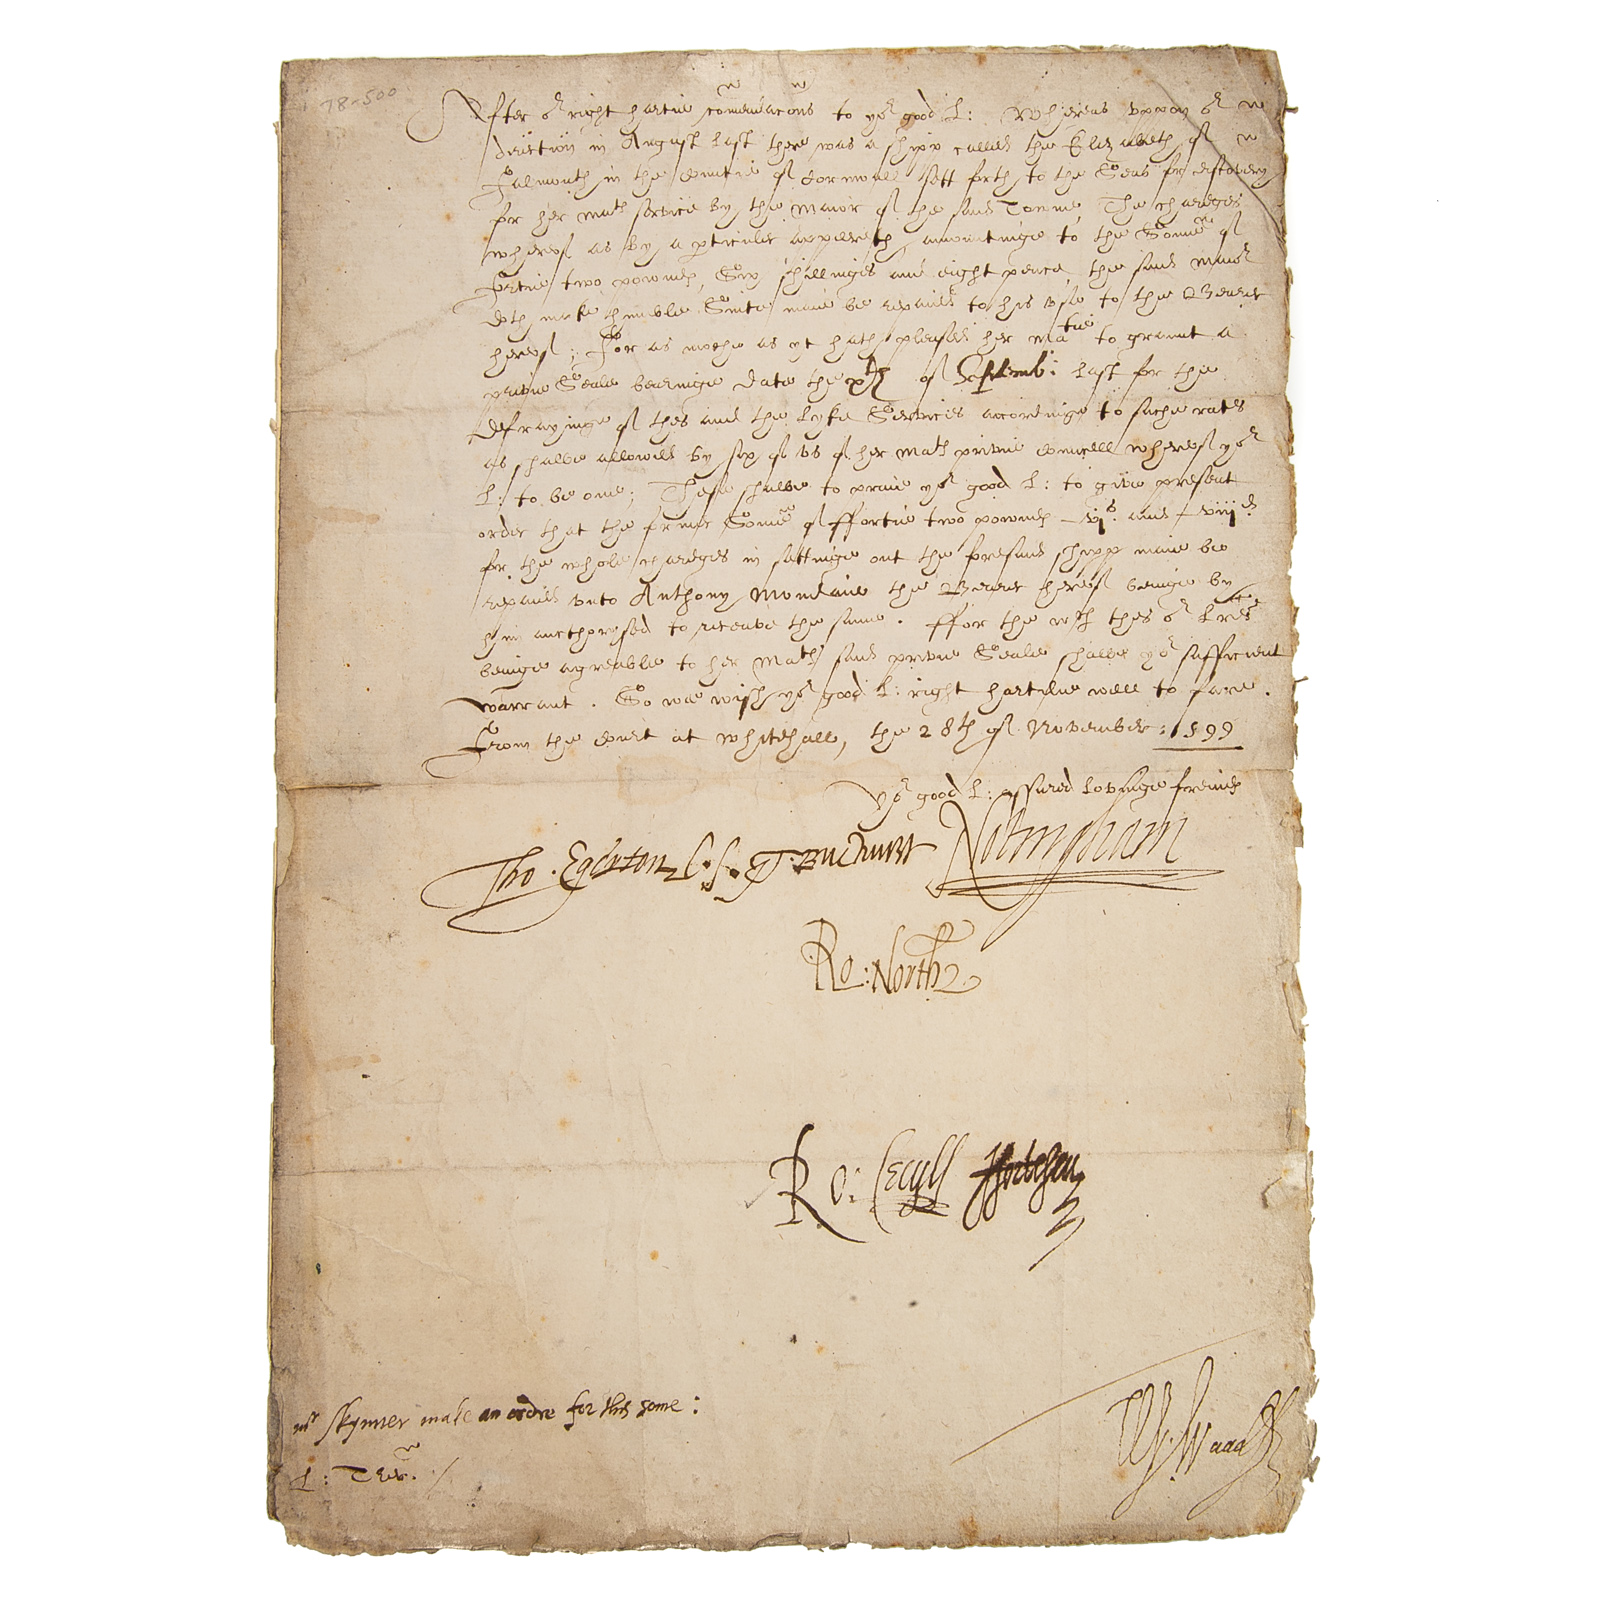 78-500
After or right hartie comendacons to yor good L: Whereas uppon or
direction in August last there was a shipp called the Elizabeth of
Falmouth in the countie of Cornwall sett forth to the Seas for discovery
for her mats service by the Maior of the said Towne, The chardges
whereof as by a pticuler appereth amountinge to the Some of
fortie two pownds, Six shillinges and eight pence, the said Maior
doth make humble Suite maie be repaied to his use to the Bearer
hereof; For as moche as yt hath pleased her Matie to graunt a
privie Seale bearinge date the xth of Septemb: last for the
defrayinge of thes and the lyke Services accordinge to suche rates
as shalbe allowed by six of us of her Mats privie Councell whereof yor
L: to be one; These shalbe to praie yor good L: to give present
order that the former Some of ffortie two pownds vjs. and viijd
for the whole chardges in settinge out the foresaid shipp maie be
repaied unto Anthony Mondaie the Bearer hereof beinge by
him aucthorised to receave the same. ffor the wch thes or lres
beinge agreable to her Mats said privie Seale shalbe yor sufficient
warrant. So we wish yor good L: right hartelie well to fare.
From the Court at Whitehall, the 28th of November: 1599
Yor good L: assured lovinge freinds
Tho. Egerton C.S. T. Buchurst Notingham
Ro: North
Ro: Cecyll J Fortescu
mr Skynner make an ordre for this some:
L: Trer.
W. Waad